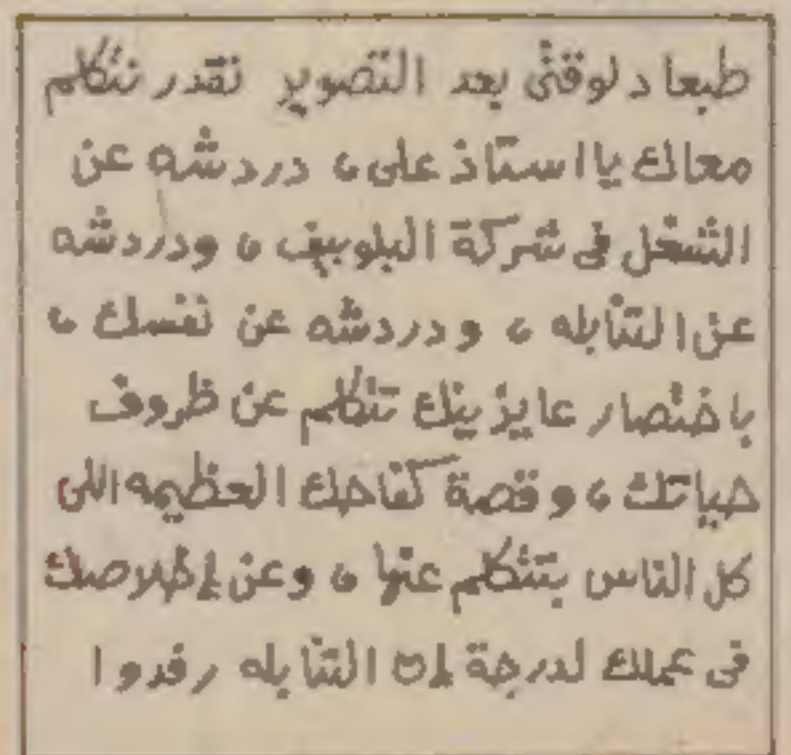 طبعا دلوقتى بعد التصوير نقدر نتكلم
معاك يا استاذ على ، دردشه عن
الشغل فى شركة البلوبيف ، ودردشه
عن التنابله ، ودردشه عن نفسك ،
باختصار عايزينك تتكلم عن ظروف
حياتك ، وقصة كفاحك العظيمه اللى
كل الناس بتتكلم عنها ، وعن إخلاصك
فى عملك لدرجة إن التنابله رفدوا